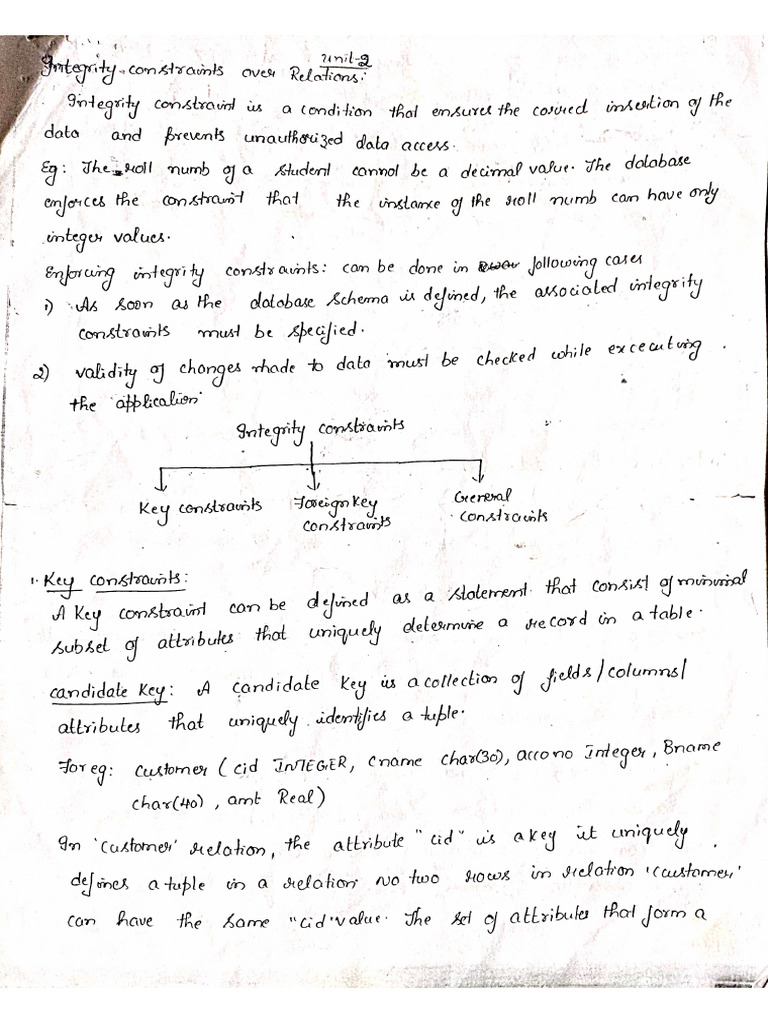 Unit-2
Integrity constraints over Relations:
Integrity constraint is a condition that ensures the correct insertion of the
data and prevents unauthorized data access.
Eg: The roll numb of a student cannot be a decimal value. The database
enforces the constraint that the instance of the roll numb can have only
integer values.
Enforcing integrity constraints: can be done in following cases
1) As soon as the database schema is defined, the associated integrity
constraints must be specified.
2) validity of changes made to data must be checked while excecutivng
the application
Integrity constraints
Key constraints Foreign key General
constraints constraints
1. Key constraints:
A key constraint can be defined as a statement that consist of minimal
subset of attributes that uniquely determine a record in a table.
candidate key: A candidate key is a collection of fields/columns/
attributes that uniquely identifies a tuple.
For eg: customer (cid INTEGER, cname char(30), acco no Integer, Bname
char(40), amt Real)
In 'customer' relation, the attribute "cid" is a key it uniquely
defines a tuple in a relation no two rows in relation 'customer'
can have the same "cid" value. The set of attributes that form a